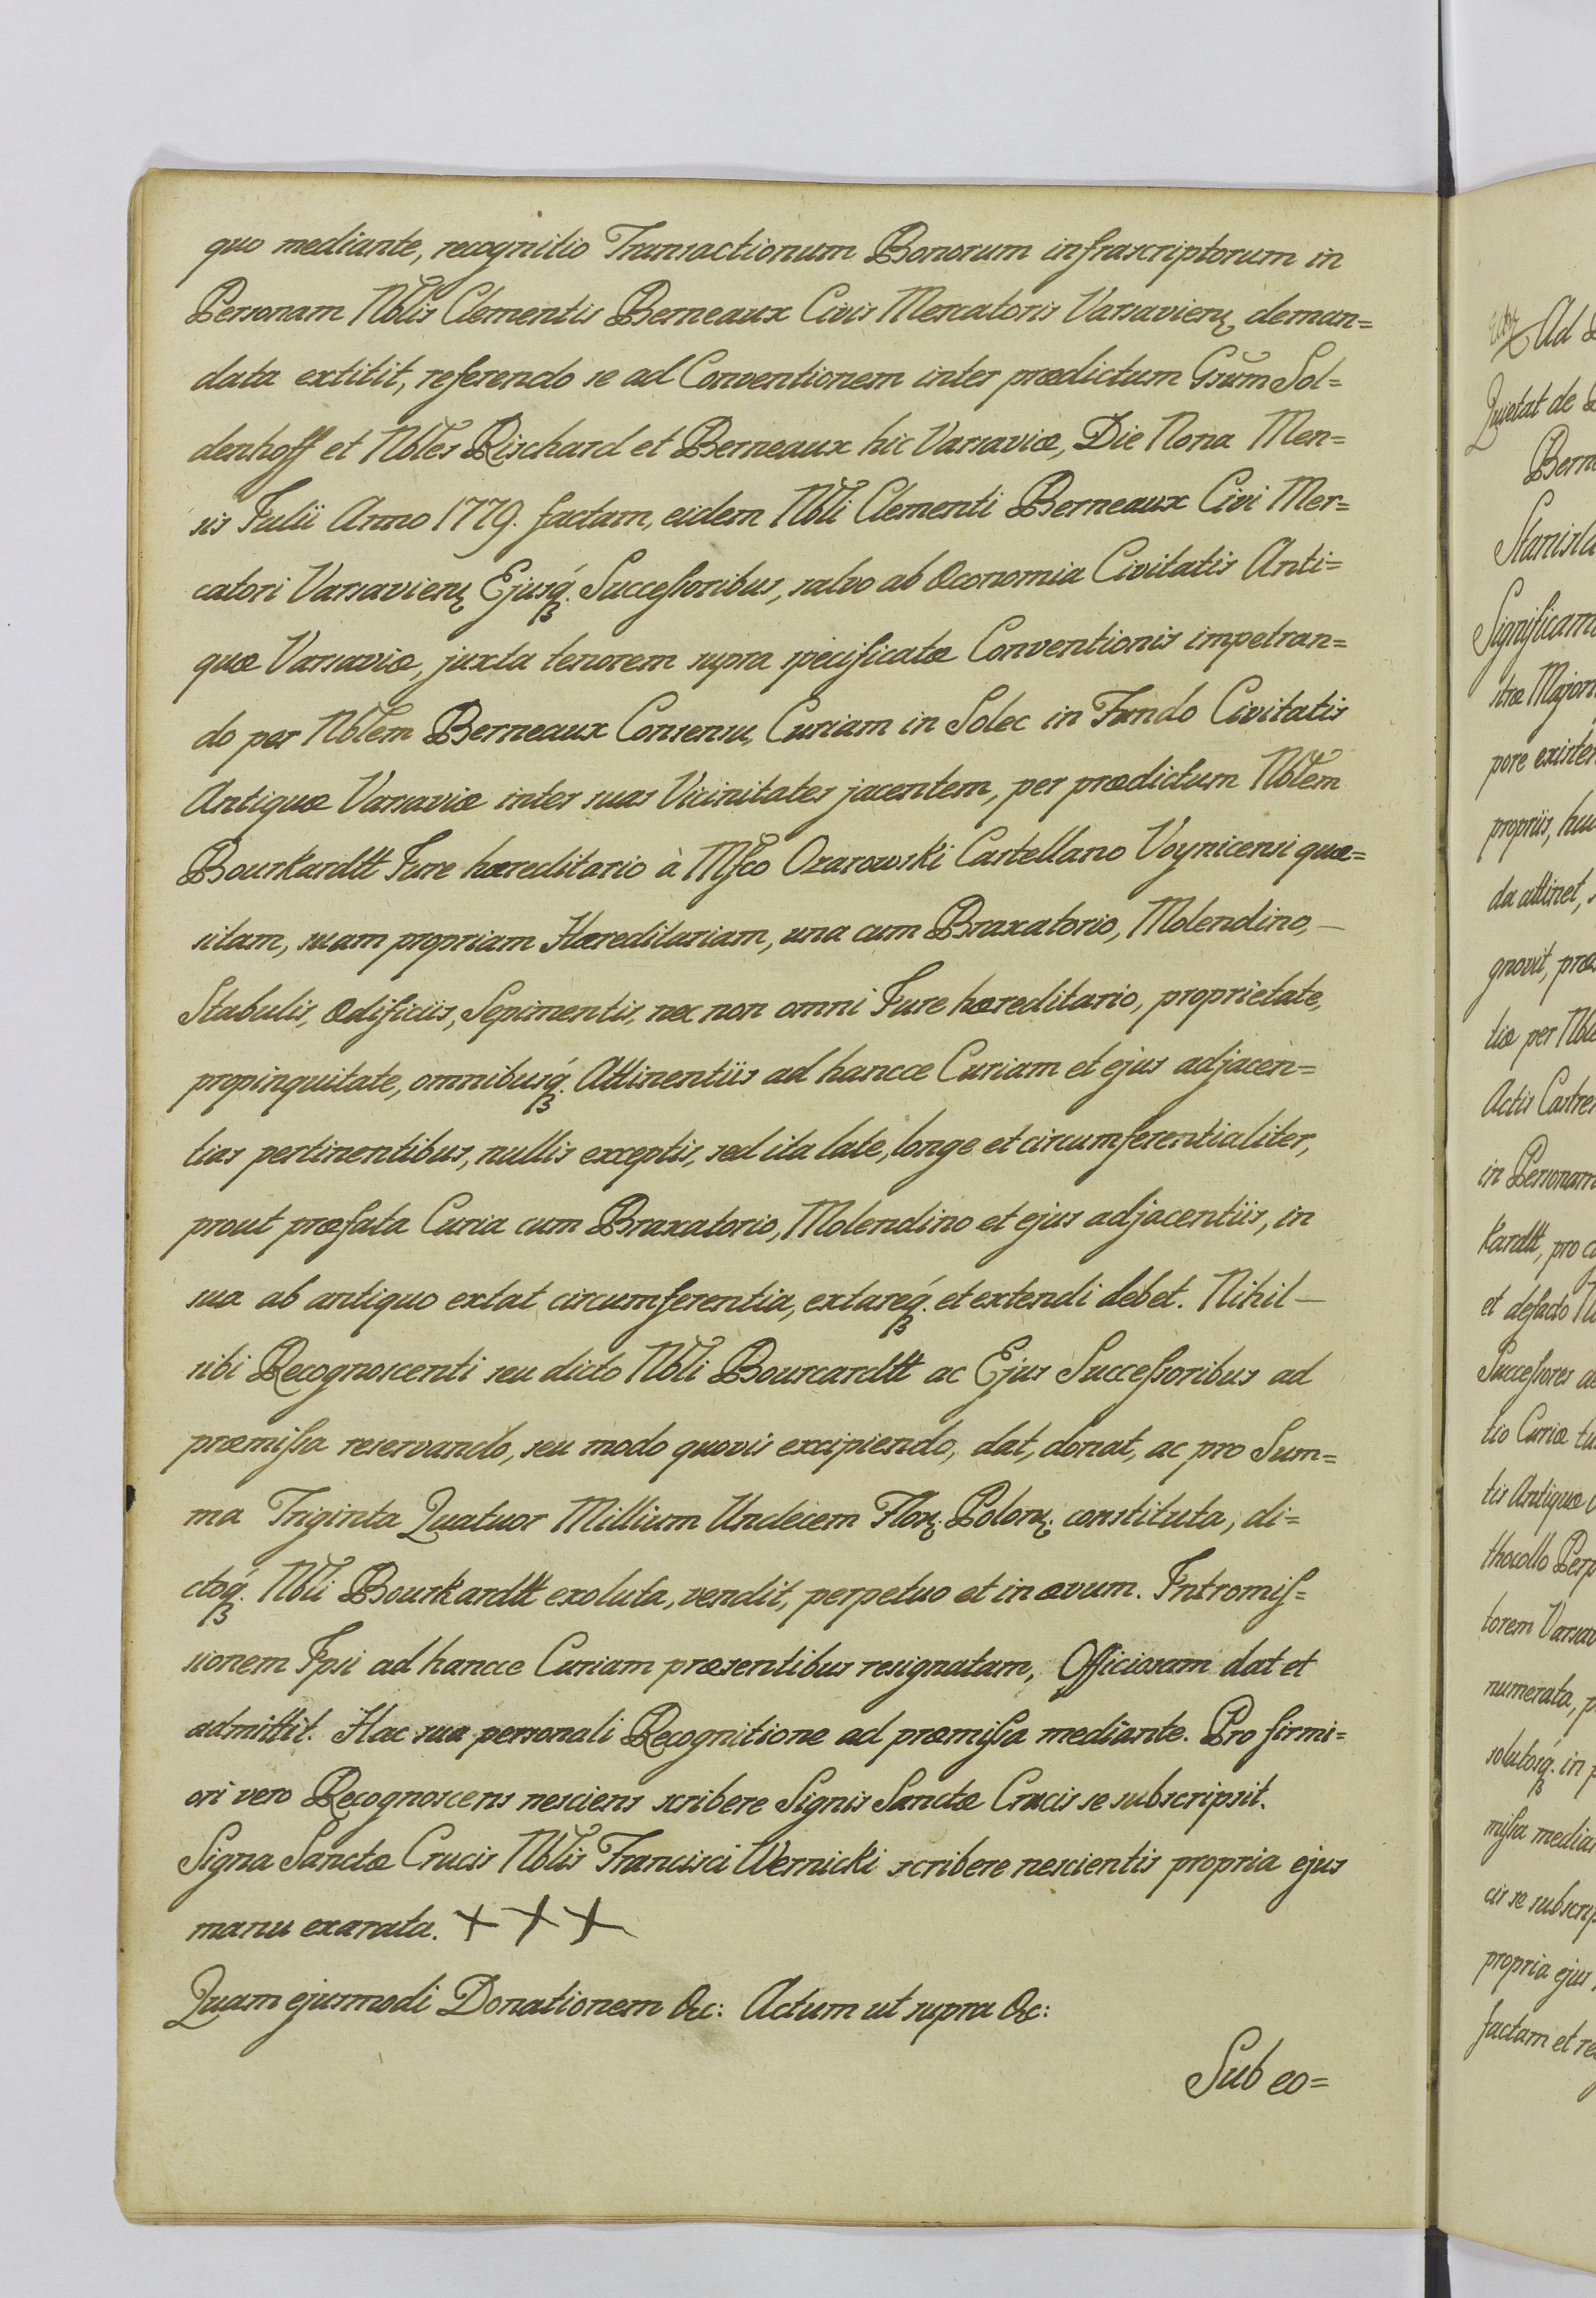 quo mediante, recognitio Transactionum Bonorum infrascriptorum in
Personam Nblis Clementis Berneaux Civis Mercatoris Varsavien, deman=
data extitit, referendo se ad Conventionem inter prædictum Grum Sol=
denhoff et Nbles Rischard et Berneaux hic Varsaviæ, Die Nona Men=
sis Julii Anno 1779. factam, eidem Nbli Clementi Berneaux Civi Mer=
catori Varsavien Ejusq. Successoribus, salvo ab Œconomia Civitatis Anti=
quæ Varsaviæ, juxta tenorem supra specificatæ Conventionis impetran=
do per Nblem Berneaux Consensu, Curiam in Solec in Fundo Civitatis
Antiquæ Varsaviæ inter suas Vicinitates jacentem, per prædictum Nblem
Bourkardtt Jure hæreditario à Mfco Ozarowski Castellano Voynicensi quæ=
sitam, suam propriam Hæreditariam, una cum Braxatorio, Molendino, —
Stabulis, Ædificiis, Sepimentis, nec non omni Jure hæreditario, proprietate,
propinquitate, omnibusq. Attinentiis ad hancce Curiam et ejus adjacen=
tias pertinentibus, nullis exceptis, sed ita late, longe et circumferentialiter,
prout præfata Curia cum Braxatorio, Molendino et ejus adjacentiis, in
sua ab antiquo extat circumferentia, extareq. et extendi debet. Nihil —
sibi Recognoscenti seu dicto Nbli Bourcardtt ac Ejus Successoribus ad
præmissa reservando, seu modo quovis excipiendo, dat, donat, ac pro Sum=
ma Triginta Quatuor Millium Undecem Flor. Polon. constituta, di=
ctoq. Nbli Bourkardtt exoluta, vendit, perpetuo et in ævum. Intromis=
sionem Ipsi ad hancce Curiam præsentibus resignatam, Officiosam dat et
admittit. Hac sua personali Recognitione ad præmissa mediante. Pro firmi=
ori vero Recognoscens nesciens scribere Signis Sanctæ Crucis se subscripsit.
Signa Sanctæ Crucis Nblis Francisci Wernicki scribere nescientis propria ejus
manu exarata. + + +
Quam ejusmodi Donationem &c: Actum ut supra &c:
Sub eo=
Ad
Quietat de
Bern
Stanisla
Significam
stræ Majori
pore existen
propriis, hu
da attinet,
gnovit, præ
tiæ per Nble
Actis Castren
in Personam
kardtt, pro
et defacto
Successores
tio Curiæ
tis Antiquæ
thocollo Perp
torem Varsav
numerata,
solutosq. in
missa median
cis se subscrip
propria ejus
factam et re